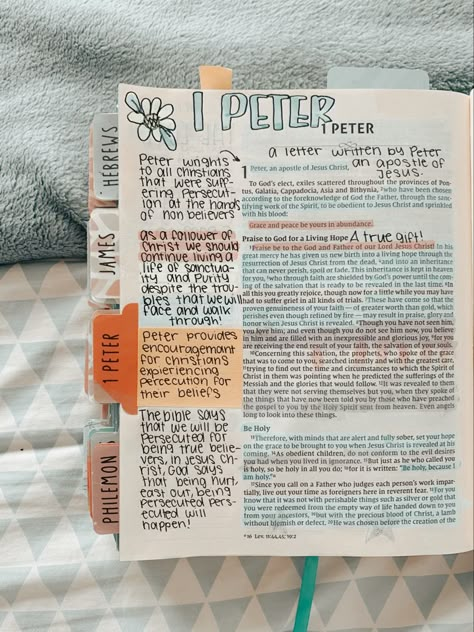 HEBREWS
JAMES
1 PETER
PHILEMON
1 PETER
1 PETER
a letter written by Peter
an apostle of
Jesus.
Peter wrights
to all Christians
that were suff-
ering Persecut-
ion at the hands
of non believers
as a follower of
Christ we should
continue living a
life of sanctua-
ity and Purity
despite the trou-
bles that we will
face and walk
through!
Peter provides
encouragement
for christians
experiencing
percecution for
their beliefs
The bible says
that we will be
Persecuted for
being true belie-
vers, in Jesus Ch-
rist, God says
that being hurt,
cast out, being
persecuted pers-
ecuted will
happen!
1 Peter, an apostle of Jesus Christ,
To God's elect, exiles scattered throughout the provinces of Pon-
tus, Galatia, Cappadocia, Asia and Bithynia, ²who have been chosen
according to the foreknowledge of God the Father, through the sanc-
tifying work of the Spirit, to be obedient to Jesus Christ and sprinkled
with his blood:
Grace and peace be yours in abundance.
Praise to God for a Living Hope A true gift!
³Praise be to the God and Father of our Lord Jesus Christ! In his
great mercy he has given us new birth into a living hope through the
resurrection of Jesus Christ from the dead, ⁴and into an inheritance
that can never perish, spoil or fade. This inheritance is kept in heaven
for you, ⁵who through faith are shielded by God's power until the com-
ing of the salvation that is ready to be revealed in the last time. ⁶In
all this you greatly rejoice, though now for a little while you may have
had to suffer grief in all kinds of trials. ⁷These have come so that the
proven genuineness of your faith—of greater worth than gold, which
perishes even though refined by fire—may result in praise, glory and
honor when Jesus Christ is revealed. ⁸Though you have not seen him,
you love him; and even though you do not see him now, you believe
in him and are filled with an inexpressible and glorious joy, ⁹for you
are receiving the end result of your faith, the salvation of your souls.
¹⁰Concerning this salvation, the prophets, who spoke of the grace
that was to come to you, searched intently and with the greatest care,
¹¹trying to find out the time and circumstances to which the Spirit of
Christ in them was pointing when he predicted the sufferings of the
Messiah and the glories that would follow. ¹²It was revealed to them
that they were not serving themselves but you, when they spoke of
the things that have now been told you by those who have preached
the gospel to you by the Holy Spirit sent from heaven. Even angels
long to look into these things.
Be Holy
¹³Therefore, with minds that are alert and fully sober, set your hope
on the grace to be brought to you when Jesus Christ is revealed at his
coming. ¹⁴As obedient children, do not conform to the evil desires
you had when you lived in ignorance. ¹⁵But just as he who called you
is holy, so be holy in all you do; ¹⁶for it is written: "Be holy, because I
am holy."
¹⁷Since you call on a Father who judges each person's work impar-
tially, live out your time as foreigners here in reverent fear. ¹⁸For you
know that it was not with perishable things such as silver or gold that
you were redeemed from the empty way of life handed down to you
from your ancestors, ¹⁹but with the precious blood of Christ, a lamb
without blemish or defect. ²⁰He was chosen before the creation of the
16 Lev. 11:44,45; 19:2